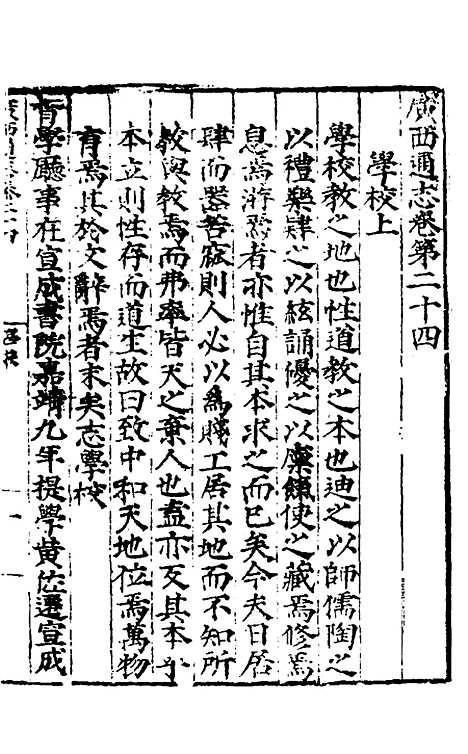 廣西通志卷第二十四
學校上
學校教之地也性道教之本也迪之以師儒陶之
以禮樂肄之以絃誦優之以廩餼使之藏焉修焉
息焉游焉者亦惟自其本求之而已矣今夫日居
肆而器苦窳則人必以爲賤工居其地而不知所
教與教焉而弗率皆天之棄人也盍亦反其本乎
本立則性存而道生故曰致中和天地位焉萬物
育焉其於文辭焉者末矣志學校
育學廳事在宣成書院嘉靖九年提學黃佐遷宣成